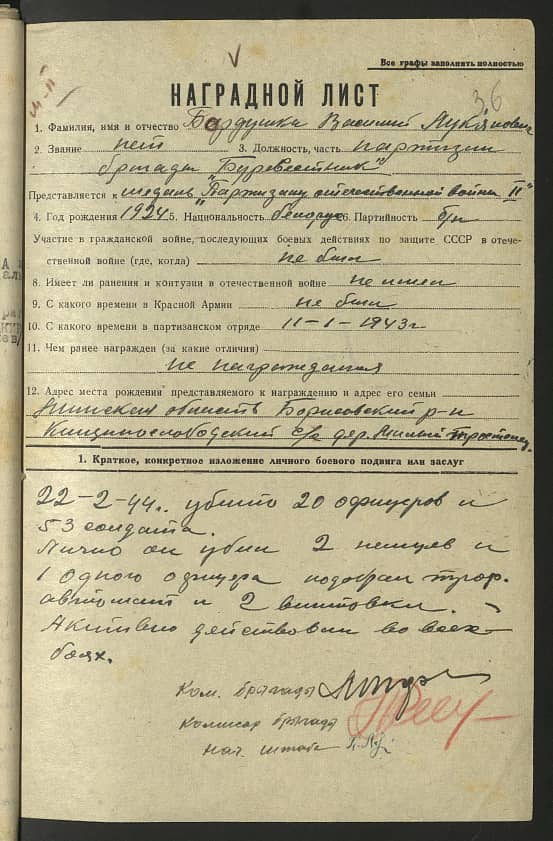 Все графы заполнять полностью
36
НАГРАДНОЙ ЛИСТ
1. Фамилия, имя и отчество Бардушка Василий Лукянович
2. Звание нет 3. Должность, часть партизан
бригады Буревестник"
Представляется к медаль "Партизану отечественной войны II"
4. Год рождения 1924 5. Национальность белорус 6. Партийность бп
Участие в гражданской войне, последующих боевых действиях по защите СССР в отече-
ственной войне (где, когда) не был
8. Имеет ли ранения и контузии в отечественной войне не имел
9. С какого времени в Красной Армии не был
10. С какого времени в партизанском отряде 11-1-1943г
11. Чем ранее награжден (за какие отличия)
не награждался
12. Адрес места рождения представляемого к награждению и адрес его семьи
Минская область Борисовский р-н
с/с дер. Малый Тростенец
1. Краткое, конкретное изложение личного боевого подвига или заслуг
22-2-44г. убито 20 офицеров и
53 солдата.
Лично он убил 2 немцев и
1 одного офицера подобрал
автомат и 2 винтовки.
Активно действовал во всех
боях.
Ком. бригады
комисар бригады
нач. штаба